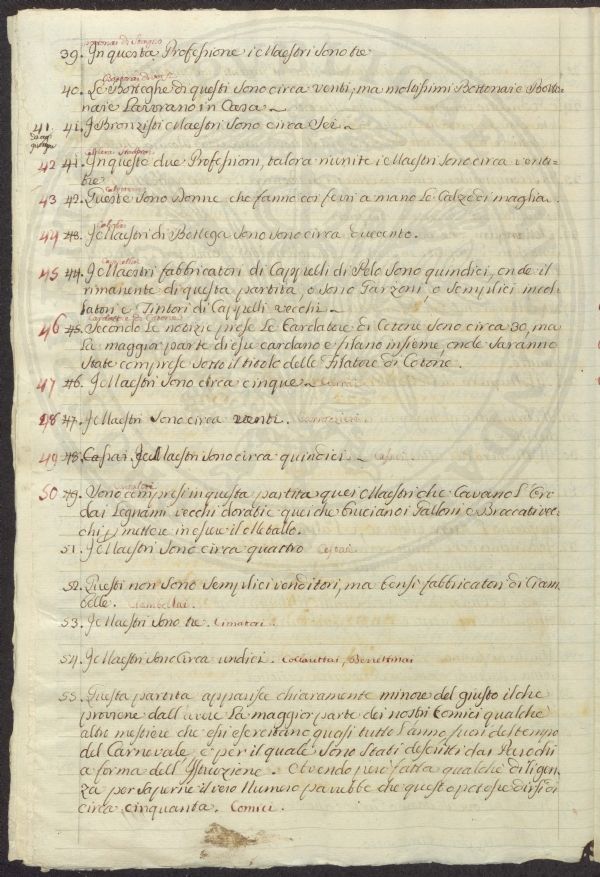 39. In questa Professione i Maestri sono tre
40. Le Botteghe di questi sono circa venti, ma moltissimi Bottonai e Botto-
naie Lavorano in Casa
41. 41. I Bronzisti Maestri sono circa Sei
42 41. In queste due Professioni, talora riunite i Maestri sono circa venti-
tre
43 42. Queste sono Donne che fanno coi ferri a mano le Calze di maglia.
44 43. I Maestri di Bottega sono circa ducento.
Cappellai
45 44. I Maestri fabbricatori di Cappelli di Pelo sono quindici, onde il
rimanente di questa partita, o sono Garzoni, o semplici
e Tintori di Cappelli vecchi
Cardatore di Cotone
46 45. Secondo le notizie prese le Cardatore di Cotone sono circa 30, ma
la maggior parte di esse cardano e filano insieme, onde saranno
state comprese sotto il titolo delle Filatore di Cotone.
47 46. I Maestri sono circa cinque
48 47. I Maestri sono circa venti.
49 48. I Maestri sono circa quindici.
50 49. Sono compresi in questa partita quei Maestri che Cavano l'Oro
dai Legnami vecchi dorati e quei che bruciano i Galloni e Broccati vec-
chi p mettere in essere il Metallo.
51. I Maestri sono circa quattro
52. Questi non sono semplici venditori, ma bensì fabbricatori di Ciam
belle. Ciambellai.
53. I Maestri sono tre. Cimatori
54. I Maestri sono Circa undici. Collarettai, Berrettinai
55. Questa partita apparisce chiaramente minore del giusto il che
proviene dall'avere la maggior parte dei nostri Comici qualche
altro mestiere che essi esercitano quasi tutto l'anno fuori del tempo
del Carnevale, e per il quale sono stati descritti dai Parochi
a forma dell'Istruzione. Avendo però fatta qualche diligen-
za per saperne il vero Numero parrebbe che questo potesse dirsi di
circa cinquanta. Comici.